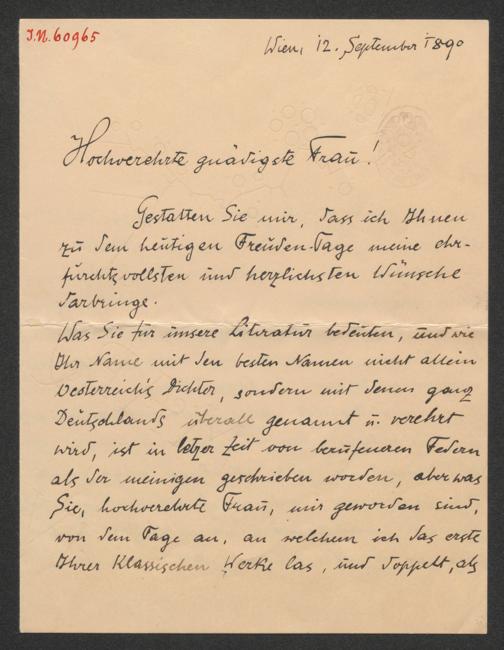 I.N. 60965
Wien, 12. September 1890
Hochverehrte gnädigste Frau!
Gestatten Sie mir, dass ich Ihnen
zu dem heutigen Freuden-Tage meine ehr-
furchtsvollsten und herzlichsten Wünsche
darbringe.
Was Sie für unsere Literatur bedeuten, und wie
Ihr Name mit den besten Namen nicht allein
Oesterreich's Dichter, sondern mit denen ganz
Deutschlands überall genannt u. verehrt
wird, ist in letzer Zeit von berufeneren Federn
als der meinigen geschrieben worden, aber was
Sie, hochverehrte Frau, mir geworden sind,
von dem Tage an, an welchem ich das erste
Ihrer Klassischen Werke las, und doppelt, als